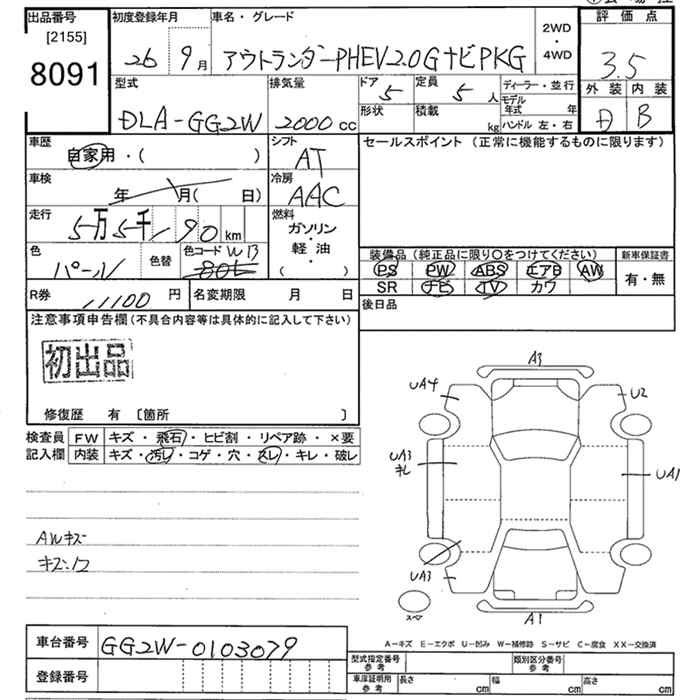 出品番号 初度登録年月 車名・グレード 評価点
[2155]
8091 26 9月 アウトランダーPHEV2.0GナビPKG 2WD・4WD 3.5
外装 内装
型式 排気量 ドア 5 定員 5人 ディーラー・並行
モデル年式 年
DLA-GG2W 2000cc 形状 積載 kg ハンドル 左・右 B
車歴 シフト セールスポイント(正常に機能するものに限ります)
自家用・( ) AT
車検 冷房
年 月( 日) AAC
走行 燃料
5万5千190km ガソリン・軽油・( )
色 色替 色コード W13 装備品(純正品に限り〇をつけてください) 新車保証書
パール PS PW ABS エアB AW 有・無
SR ナビ TV カワ
R券 11100円 名変期限 月 日 後日品
注意事項申告欄(不具合内容等は具体的に記入して下さい)
初出品
修復歴 有 [箇所 ]
検査員 FW キズ・飛石・ヒビ割・リペア跡・×要
記入欄 内装 キズ・汚レ・コゲ・穴・スレ・キレ・破レ
A3
UA4 U2
UA3
キレ UA1
AWキズ
キズ:12
UA3
スペア
A1
A-キズ E-エクボ U-凹み W-補修跡 S-サビ C-腐食 XX-交換済
車台番号 GG2W-0103079
型式指定番号 参考 類別区分番号 参考
登録番号 車庫証明用 参考 長さ cm 幅 cm 高さ cm